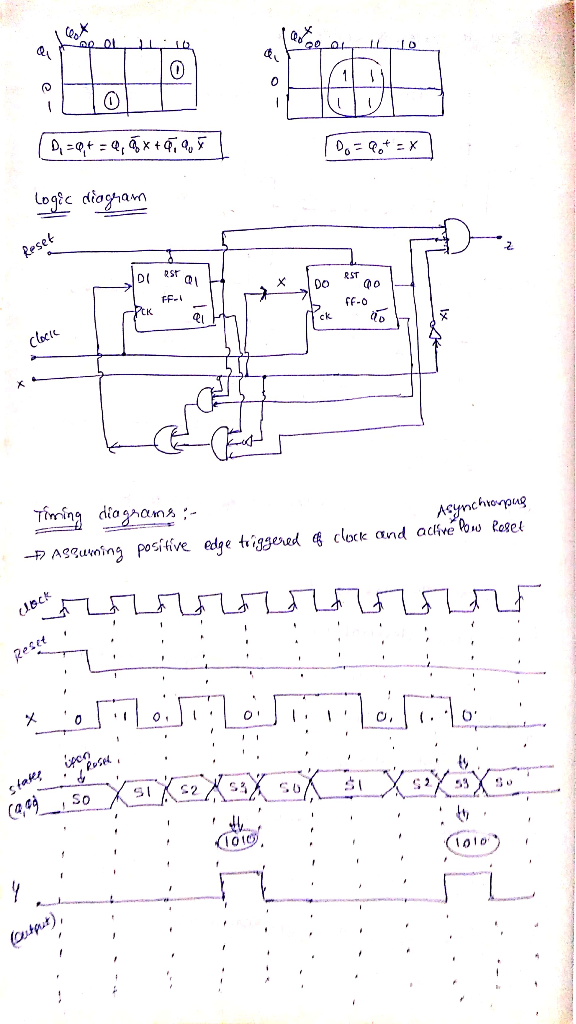 Q₁ \ Q₀X 00 01 11 10
0 1
1 1
D₁ = Q₁⁺ = Q₁ Q̄₀ X + Q̄₁ Q₀ X̄
Q₁ \ Q₀X 00 01 11 10
0 1 1
1 1 1
D₀ = Q₀⁺ = X
Logic diagram
Reset
D1 RST Q1
FF-1
CK Q̄1
X
D0 RST Q0
FF-0
CK Q̄0
Z
X̄
Clock
X
Timing diagrams :-
Asynchronous
→ Assuming positive edge triggered of clock and active low Reset
clock
Reset
X 0 1 0 1 0 1 1 0 1 0
upon Reset
states (Q₁Q₀) S0 S1 S2 S3 S0 S1 S2 S3 S0
1010 1010
Y
(output)